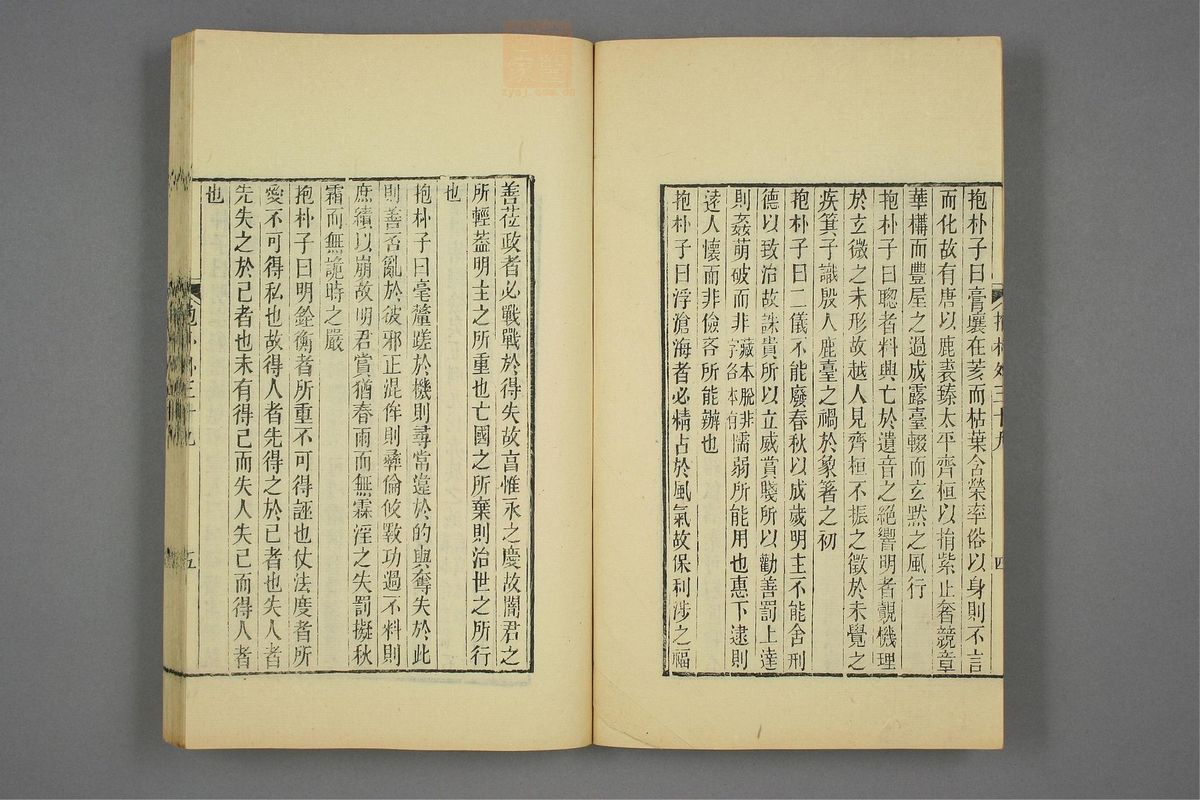 抱朴子曰膏壤在荄而枯葉含榮率俗以身則不言
而化故有唐以鹿裘臻太平齊桓以捐紫止奢競章
華構而豐屋之過成露臺輟而玄黙之風行
抱朴子曰聰者料興亡於遺音之絕響明者覿機理
於玄微之未形故越人見齊桓不振之徵於未覺之
疾箕子識殷人鹿臺之禍於象箸之初
抱朴子曰二儀不能廢春秋以成歲明主不能舍刑
德以致治故誅貴所以立威賞賤所以勸善罰上達
則姦萌破而非藏本脫非字各本有懦弱所能用也惠下逮則
遠人懷而非儉吝所能辦也
抱朴子曰浮滄海者必精占於風氣故保利涉之福
抱朴外三十九
四
善莅政者必戰戰於得失故享惟永之慶故闇君之
所輕蓋明主之所重也亡國之所棄則治世之所行
也
抱朴子曰毫釐蹉於機則尋常違於的與奪失於此
則善否亂於彼邪正混侔則彝倫攸斁功過不料則
庶績以崩故明君賞猶春雨而無霖淫之失罰擬秋
霜而無詭時之嚴
抱朴子曰明銓衡者所重不可得誣也仗法度者所
愛不可得私也故得人者先得之於己者也失人者
先失之於己者也未有得己而失人失己而得人者
也
五